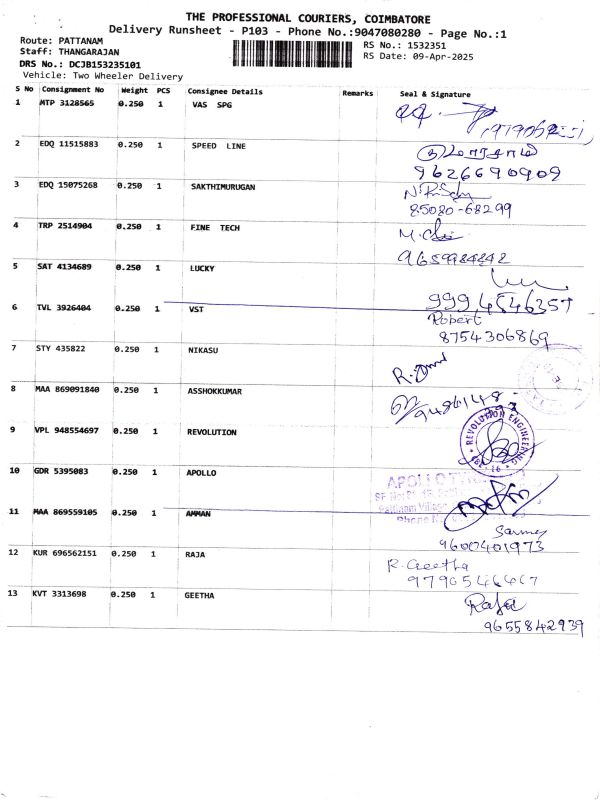 THE PROFESSIONAL COURIERS, COIMBATORE
Delivery Runsheet - P103 - Phone No.:9047080280 - Page No.:1
Route: PATTANAM RS No.: 1532351
Staff: THANGARAJAN RS Date: 09-Apr-2025
DRS No.: DCJB153235101
Vehicle: Two Wheeler Delivery
S No Consignment No Weight PCS Consignee Details Remarks Seal & Signature
1 MTP 3128565 0.250 1 VAS SPG
2 EDQ 11515883 0.250 1 SPEED LINE
9626690909
3 EDQ 15075268 0.250 1 SAKTHIMURUGAN
85080-68299
4 TRP 2514904 0.250 1 FINE TECH
5 SAT 4134689 0.250 1 LUCKY
6 TVL 3926404 0.250 1 VST
Robert
8754306869
7 STY 435822 0.250 1 NIKASU
8 MAA 869091840 0.250 1 ASSHOKKUMAR
9 VPL 948554697 0.250 1 REVOLUTION
REVOLUTION ENGINEERING
10 GDR 5395083 0.250 1 APOLLO
APOLLO
11 MAA 869559105 0.250 1 AMMAN
9600401973
12 KUR 696562151 0.250 1 RAJA
R. Geetha
9790546467
13 KVT 3313698 0.250 1 GEETHA
Raja
9655842939